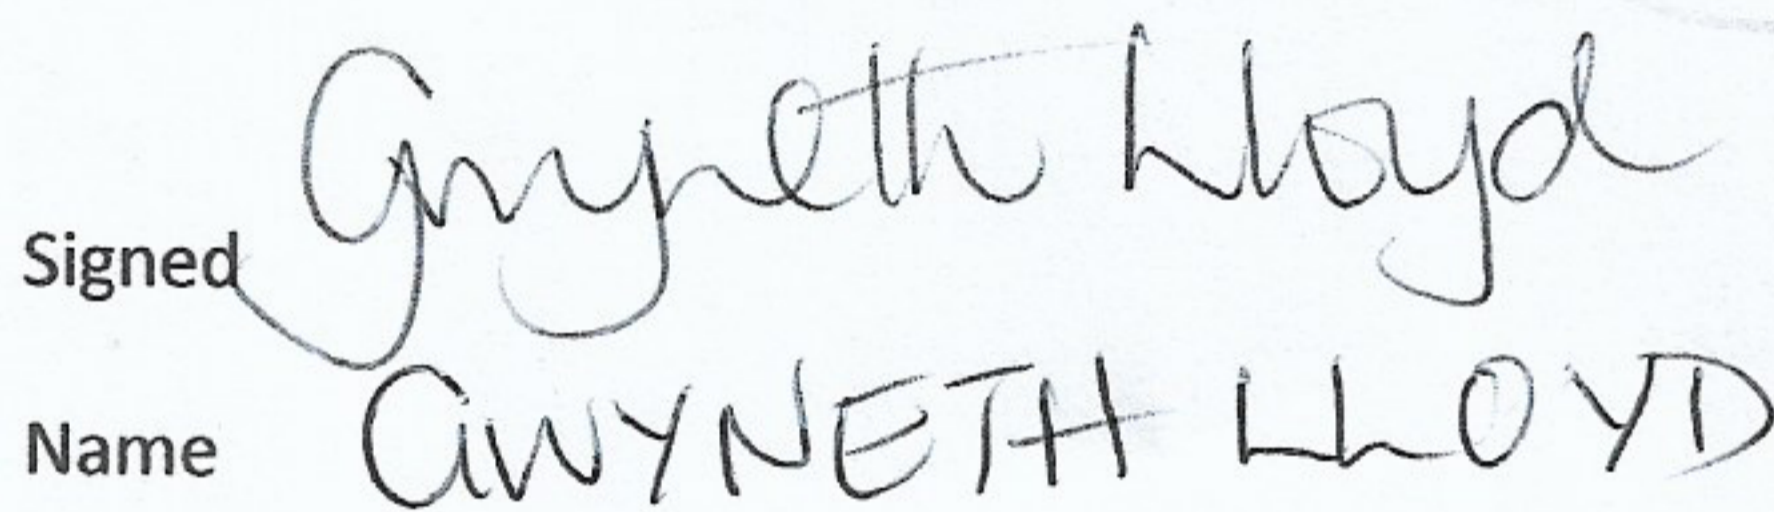 Signed Gwyneth Lloyd
Name GWYNETH LLOYD